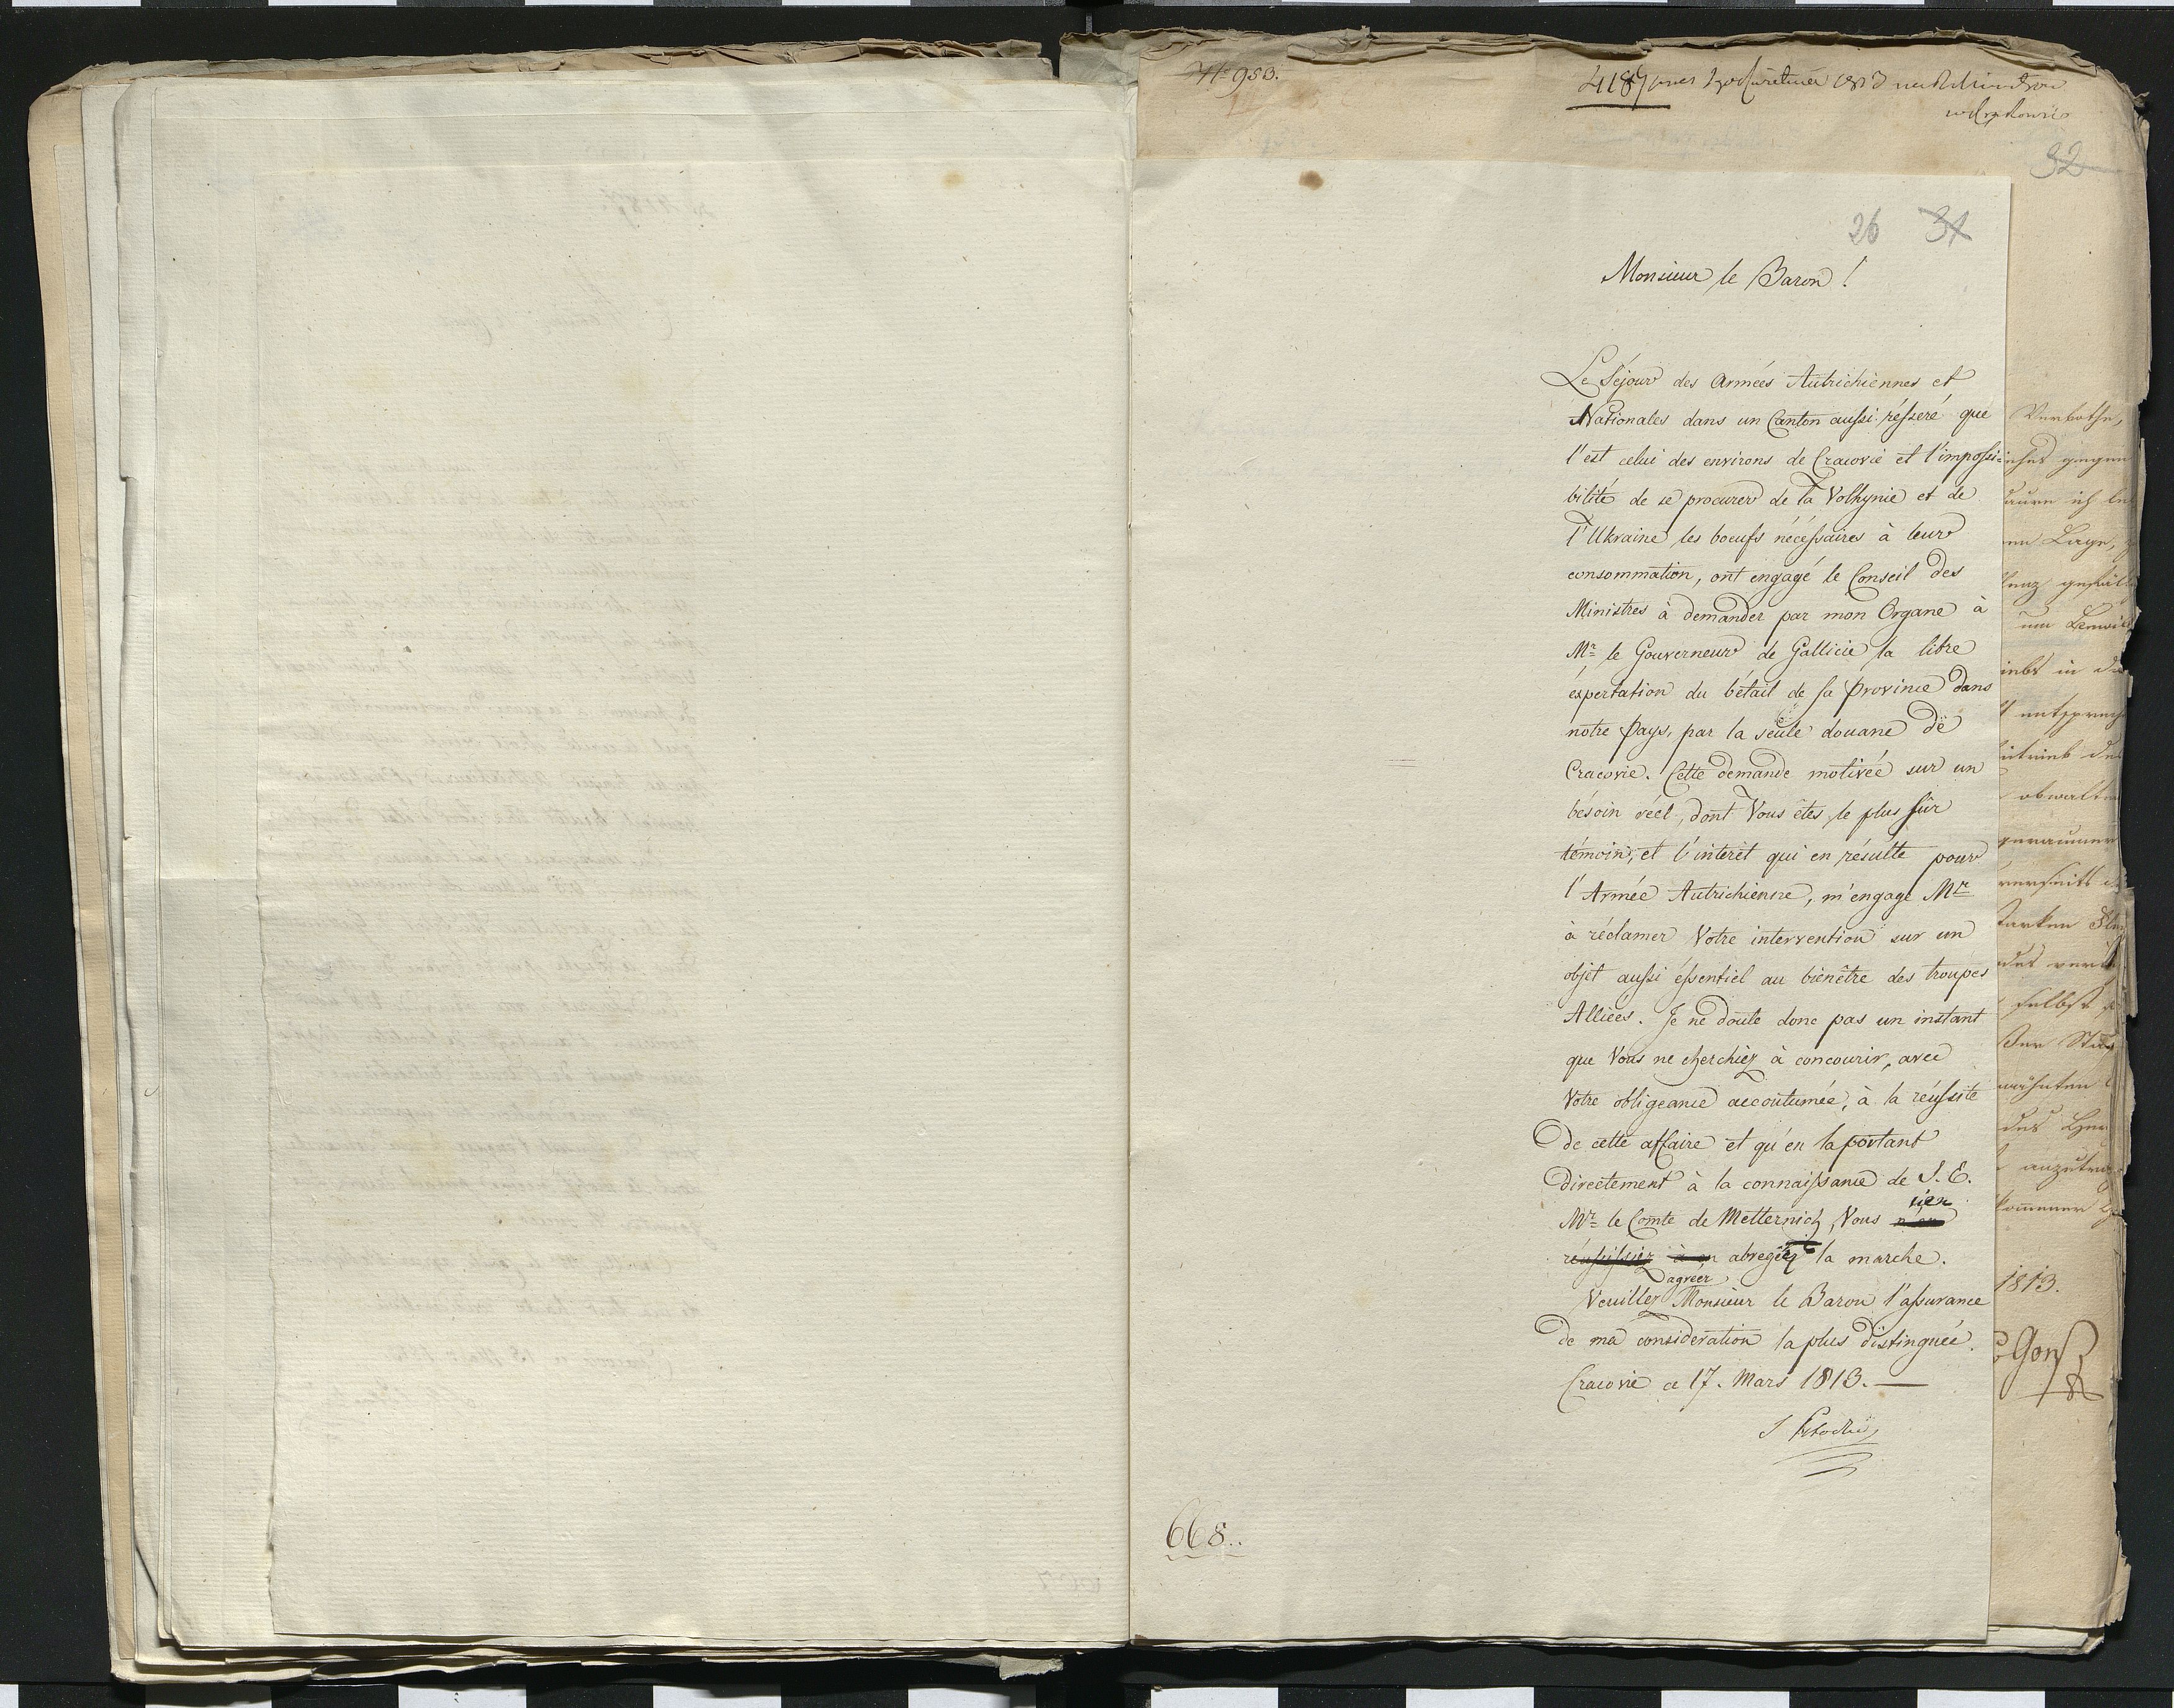 N. 953.
4189
32
26 31
Monsieur le Baron !
Le Séjour des Armées Autrichiennes et
Nationales dans un Canton aussi résseré que
l'est celui des environs de Cracovie et l'impossi-
bilité de se procurer de la Volhynie et de
l'Ukraine les boeufs nécéssaires à leur
consommation, ont engagé le Conseil des
Ministres à demander par mon Organe à
Mr le Gouverneur de Gallicie la libre
éxportation du bétail de sa Province dans
notre Pays, par la seule douane de
Cracovie. Cette demande motivée sur un
bésoin réel, dont Vous êtes le plus sûr
témoin, et l'interêt qui en résulte pour
l'Armée Autrichienne, m'engage Mr
à réclamer Votre intervention sur un
objet aussi éssentiel au bienêtre des troupes
Alliées. Je ne doute donc pas un instant
que Vous ne cherchiez à concourir, avec
Votre obligeance accoutumée, à la réussite
de cette affaire et qu'en la portant
directement à la connaissance de S. E.
Mr le Comte de Metternich, Vous
réussissiez à en abregiez la marche.
Veuillez agréer Monsieur le Baron l'assurance
de ma considération la plus distinguée.
Cracovie ce 17. Mars 1813. —
668..
Verbothe,
gegen
ich
Lage,
um
in
selbst
des
1813.